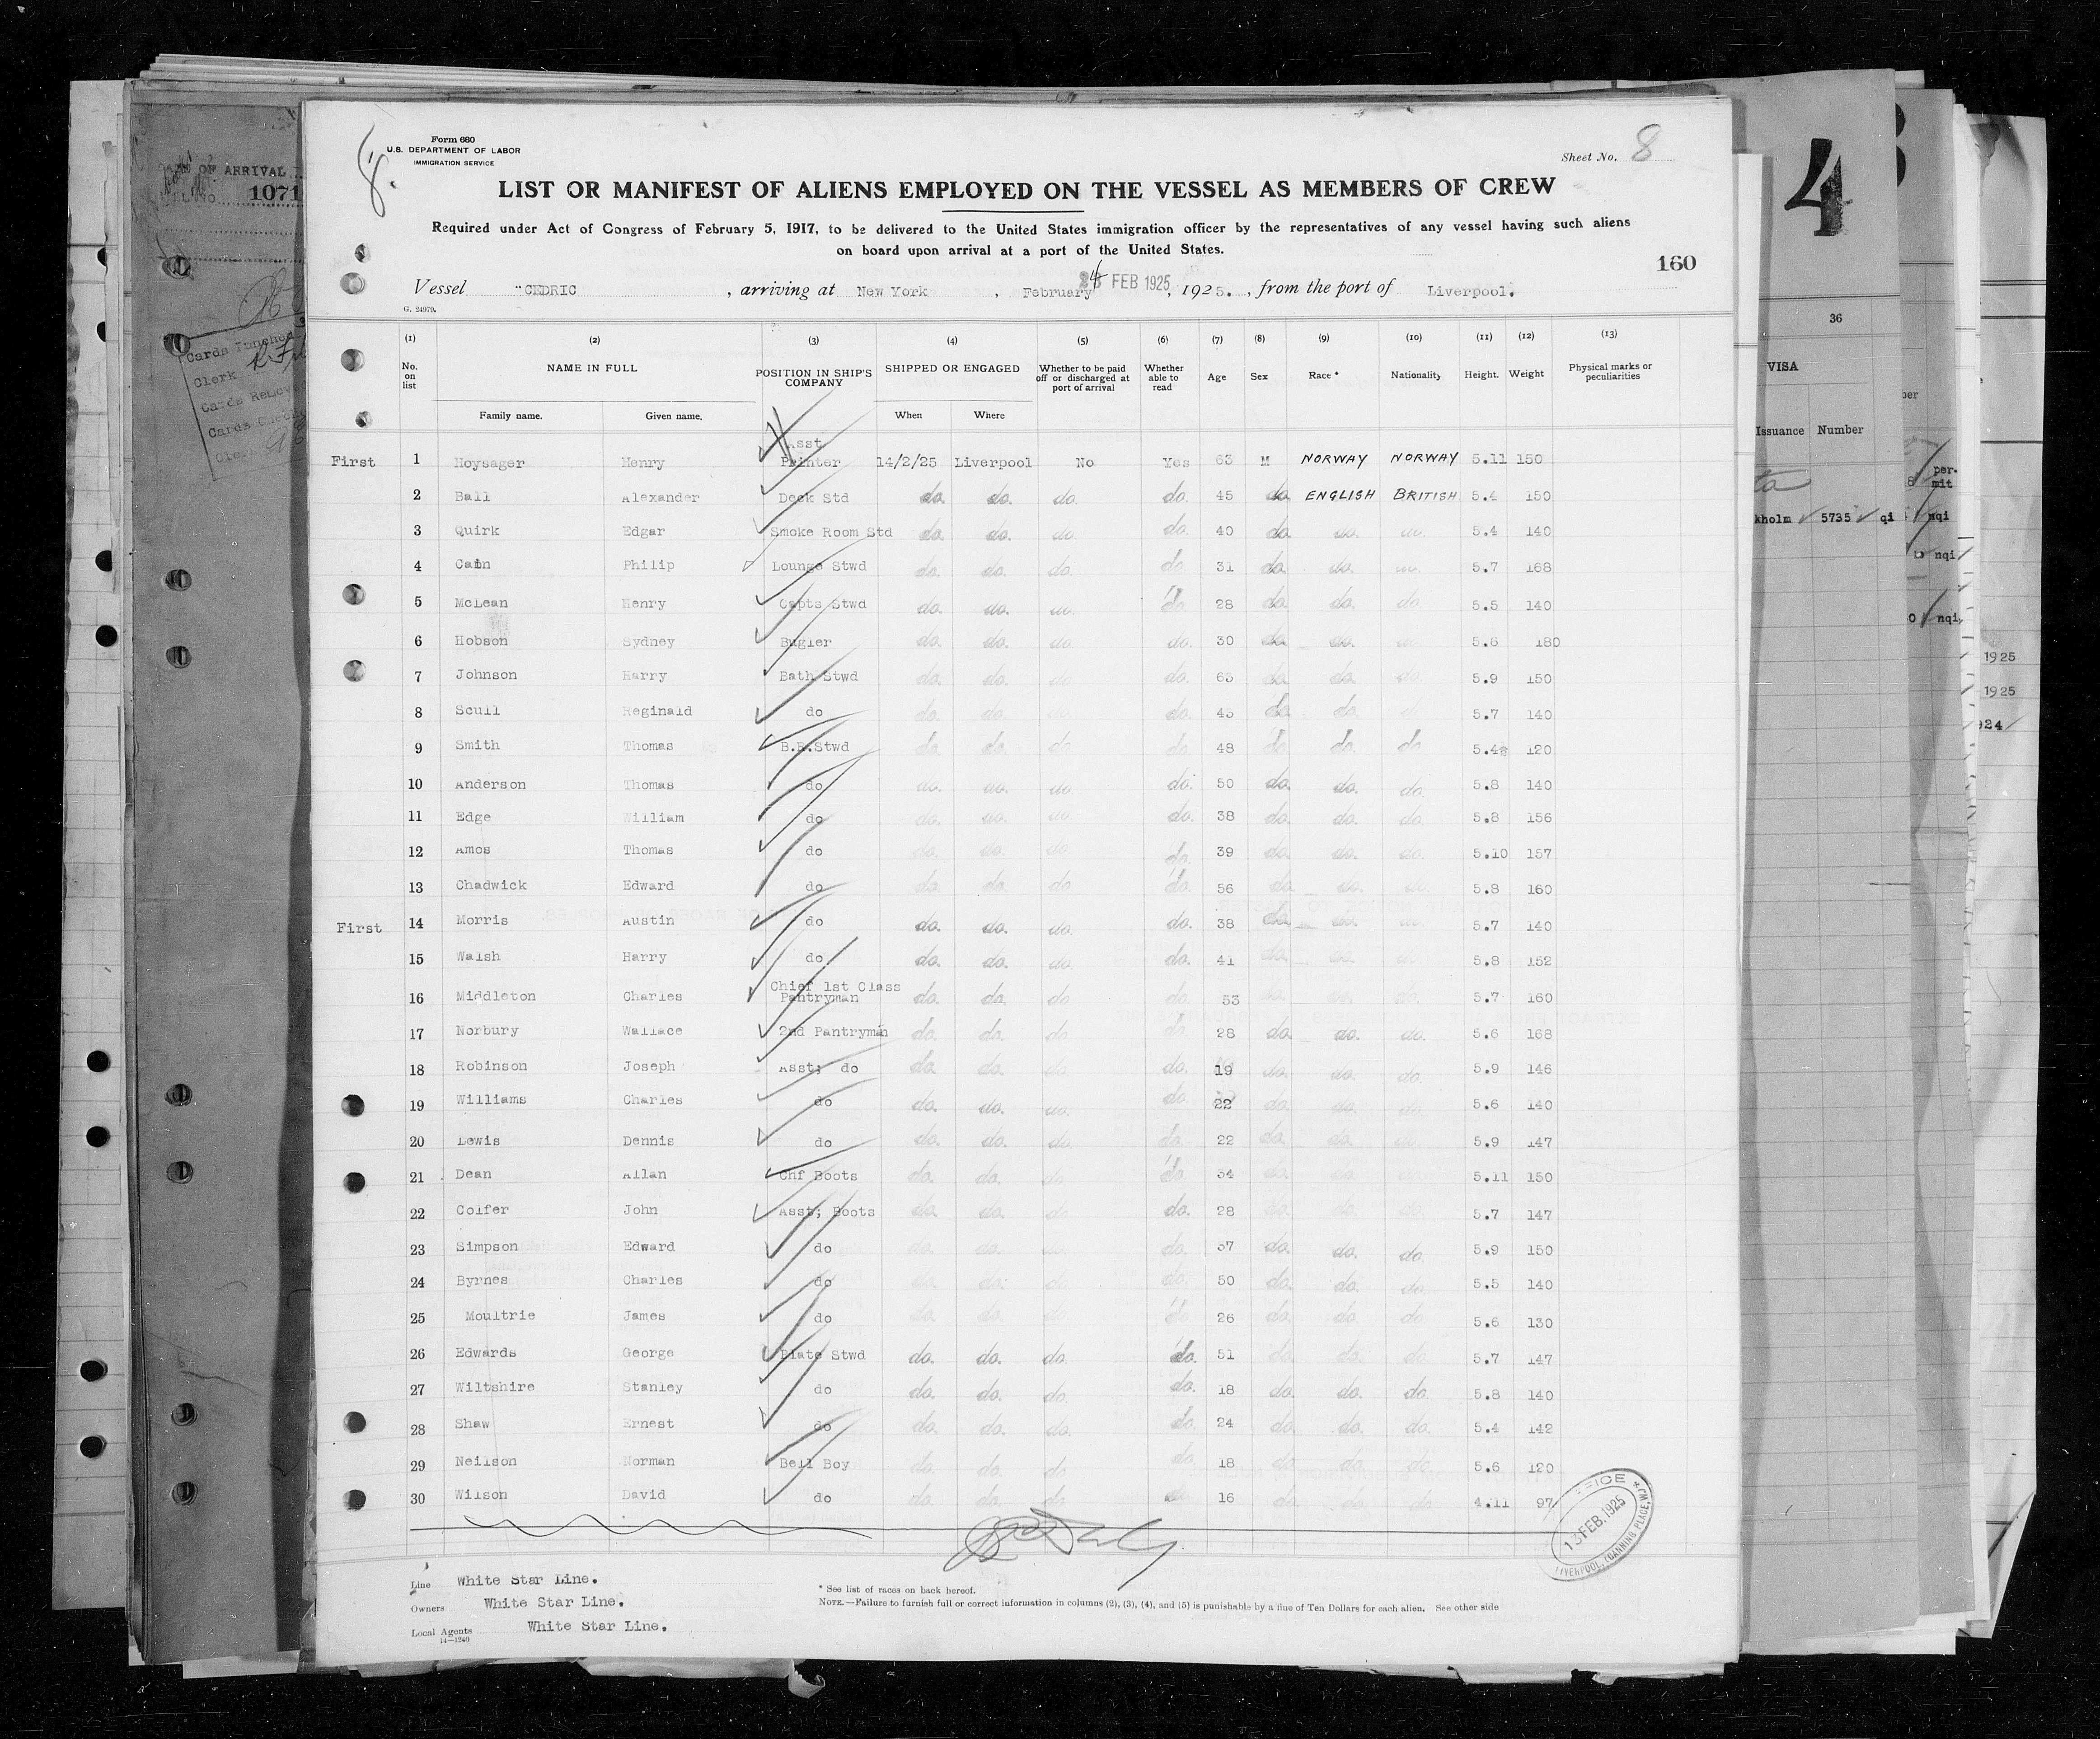 Form 680
U.S. DEPARTMENT OF LABOR
IMMIGRATION SERVICE
Sheet No. 8
8.
LIST OR MANIFEST OF ALIENS EMPLOYED ON THE VESSEL AS MEMBERS OF CREW
Required under Act of Congress of February 5, 1917, to be delivered to the United States immigration officer by the representatives of any vessel having such aliens
on board upon arrival at a port of the United States.
160
Vessel "CEDRIC , arriving at New York , February 24 FEB 1925 , 1925. , from the port of Liverpool.
G. 24979.
(1) (2) (3) (4) (5) (6) (7) (8) (9) (10) (11) (12) (13)
No. on list NAME IN FULL POSITION IN SHIP'S COMPANY SHIPPED OR ENGAGED Whether to be paid off or discharged at port of arrival Whether able to read Age Sex Race * Nationality Height. Weight Physical marks or peculiarities
Family name. Given name. When Where
First 1 Hoysager Henry Asst Printer 14/2/25 Liverpool No Yes 63 M NORWAY NORWAY 5.11 150
2 Ball Alexander Deck Std do. do. do. do. 45 do. ENGLISH BRITISH 5.4 150
3 Quirk Edgar Smoke Room Std do. do. do. do. 40 do. do. do. 5.4 140
4 Cain Philip Lounge Stwd do. do. do. do. 31 do. do. do. 5.7 168
5 McLean Henry Capts Stwd do. do. do. do. 28 do. do. do. 5.5 140
6 Hobson Sydney Bugler do. do. do. do. 30 do. do. do. 5.6 180
7 Johnson Harry Bath Stwd do. do. do. do. 63 do. do. do. 5.9 150
8 Scull Reginald do do. do. do. do. 43 do. do. do. 5.7 140
9 Smith Thomas B.R.Stwd do. do. do. do. 48 do. do. do. 5.4 120
10 Anderson Thomas do do. do. do. do. 50 do. do. do. 5.8 140
11 Edge William do do. do. do. do. 38 do. do. do. 5.8 156
12 Amos Thomas do do. do. do. do. 39 do. do. do. 5.10 157
13 Chadwick Edward do do. do. do. do. 56 do. do. do. 5.8 160
First 14 Morris Austin do do. do. do. do. 38 do. do. do. 5.7 140
15 Walsh Harry do do. do. do. do. 41 do. do. do. 5.8 152
16 Middleton Charles Chief 1st Class Pantryman do. do. do. do. 53 do. do. do. 5.7 160
17 Norbury Wallace 2nd Pantryman do. do. do. do. 28 do. do. do. 5.6 168
18 Robinson Joseph Asst; do do. do. do. do. 19 do. do. do. 5.9 146
19 Williams Charles do do. do. do. do. 22 do. do. do. 5.6 140
20 Lewis Dennis do do. do. do. do. 22 do. do. do. 5.9 147
21 Dean Allan Chf Boots do. do. do. do. 34 do. do. do. 5.11 150
22 Colfer John Asst; Boots do. do. do. do. 28 do. do. do. 5.7 147
23 Simpson Edward do do. do. do. do. 37 do. do. do. 5.9 150
24 Byrnes Charles do do. do. do. do. 50 do. do. do. 5.5 140
25 Moultrie James do do. do. do. do. 26 do. do. do. 5.6 130
26 Edwards George Plate Stwd do. do. do. do. 51 do. do. do. 5.7 147
27 Wiltshire Stanley do do. do. do. do. 18 do. do. do. 5.8 140
28 Shaw Ernest do do. do. do. do. 24 do. do. do. 5.4 142
29 Neilson Norman Bell Boy do. do. do. do. 18 do. do. do. 5.6 120
30 Wilson David do do. do. do. do. 16 do. do. do. 4.11 97
13 FEB. 1925
LIVERPOOL, (CANNING PLACE,)
Line White Star Line.
Owners White Star Line.
Local Agents White Star Line.
14—1240
* See list of races on back hereof.
NOTE.—Failure to furnish full or correct information in columns (2), (3), (4), and (5) is punishable by a fine of Ten Dollars for each alien. See other side
OF ARRIVAL
1071
Cards Punched
Clerk
4
36
VISA
Issuance Number
kholm 5735 qi
nqi
per-
mit
nqi
nqi
1925
1925
924